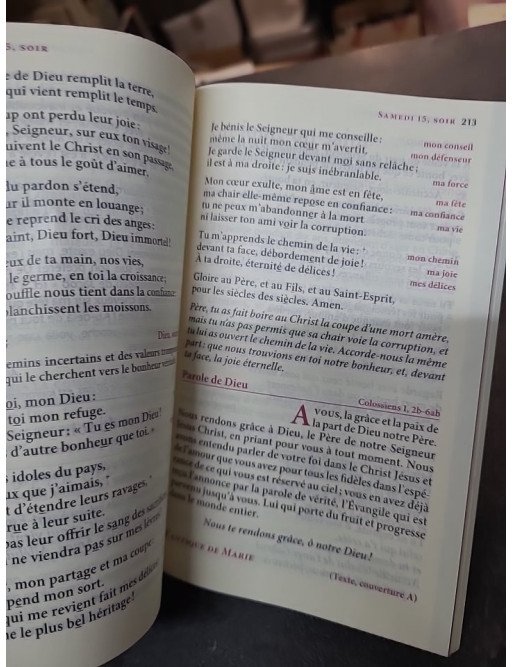 5, SOIR
e de Dieu remplit la terre,
qui vient remplit le temps.
up ont perdu leur joie :
, Seigneur, sur eux ton visage !
uivent le Christ en son passage,
ne à tous le goût d'aimer,
du pardon s'étend,
ur il monte en louange ;
e reprend le cri des anges :
aint, Dieu fort, Dieu immortel !
eux de ta main, nos vies,
le germe, en toi la croissance ;
ouffle nous tient dans la confiance
planchissent les moissons.
emins incertains et des valeurs
qui le cherchent vers le bonheur
oi, mon Dieu :
toi mon refuge.
Seigneur : « Tu es mon Dieu !
d'autre bonheur que toi.
idoles du pays,
ux que j'aimais, *
t d'étendre leurs ravages, *
rue à leur suite.
pas leur offrir le sang des
ne viendra pas sur mes
, mon partage et ma coupe
pend mon sort.
qui me revient fait mes délices
e le plus bel héritage !
SAMEDI 15, SOIR 213
Je bénis le Seigneur qui me conseille : mon conseil
même la nuit mon cœur m'avertit, mon défenseur
Je garde le Seigneur devant moi sans relâche ;
il est à ma droite : je suis inébranlable. ma force
Mon cœur exulte, mon âme est en fête, ma fête
ma chair elle-même repose en confiance : ma confiance
tu ne peux m'abandonner à la mort ma vie
ni laisser ton ami voir la corruption.
Tu m'apprends le chemin de la vie : + mon chemin
devant ta face, débordement de joie ! ma joie
À ta droite, éternité de délices ! mes délices
Gloire au Père, et au Fils, et au Saint-Esprit,
pour les siècles des siècles. Amen.
Père, tu as fait boire au Christ la coupe d'une mort amère,
mais tu n'as pas permis que sa chair voie la corruption, et
tu lui as ouvert le chemin de la vie. Accorde-nous la même
part : que nous trouvions en toi notre bonheur, et, devant
ta face, la joie éternelle.
Parole de Dieu
Colossiens 1, 2b-6ab
À VOUS, la grâce et la paix de
la part de Dieu notre Père.
Nous rendons grâce à Dieu, le Père de notre Seigneur
Jésus Christ, en priant pour vous à tout moment. Nous
avons entendu parler de votre foi dans le Christ Jésus et
de l'amour que vous avez pour tous les fidèles dans l'espé-
rance de ce qui vous est réservé au ciel ; vous en avez déjà
reçu l'annonce par la parole de vérité, l'Évangile qui est
parvenu jusqu'à vous. Lui qui porte du fruit et progresse
dans le monde entier.
Nous te rendons grâce, ô notre Dieu !
CANTIQUE DE MARIE
(Texte, couverture A)